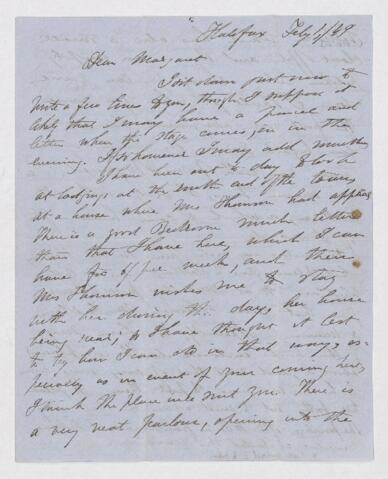 Halifax July 1/49
Dear Margaret
I sit down just now to
write a few lines to you, though I suppose it
likely that I may have a parcel and
letter when the stage comes in in the
evening. If so however I may add another
I have been out to day to look
at lodgings at the south end of the town
at a house where Mrs Thomson had applied
There is a good Bedroom much better
than that I have here, which I can
have for 6/ per week, and then
Mrs Thomson wishes me to stay
with her during the day, her house
being near; so I have thought it best
to try how I can do in that way, es-
pecially as in event of your coming here,
I think the place will suit you. There is
a very neat parlour, opening into the